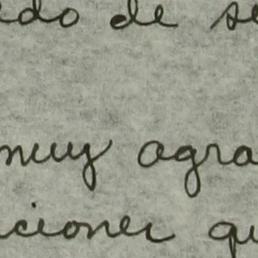 edo de se
muy agra
aciones qu